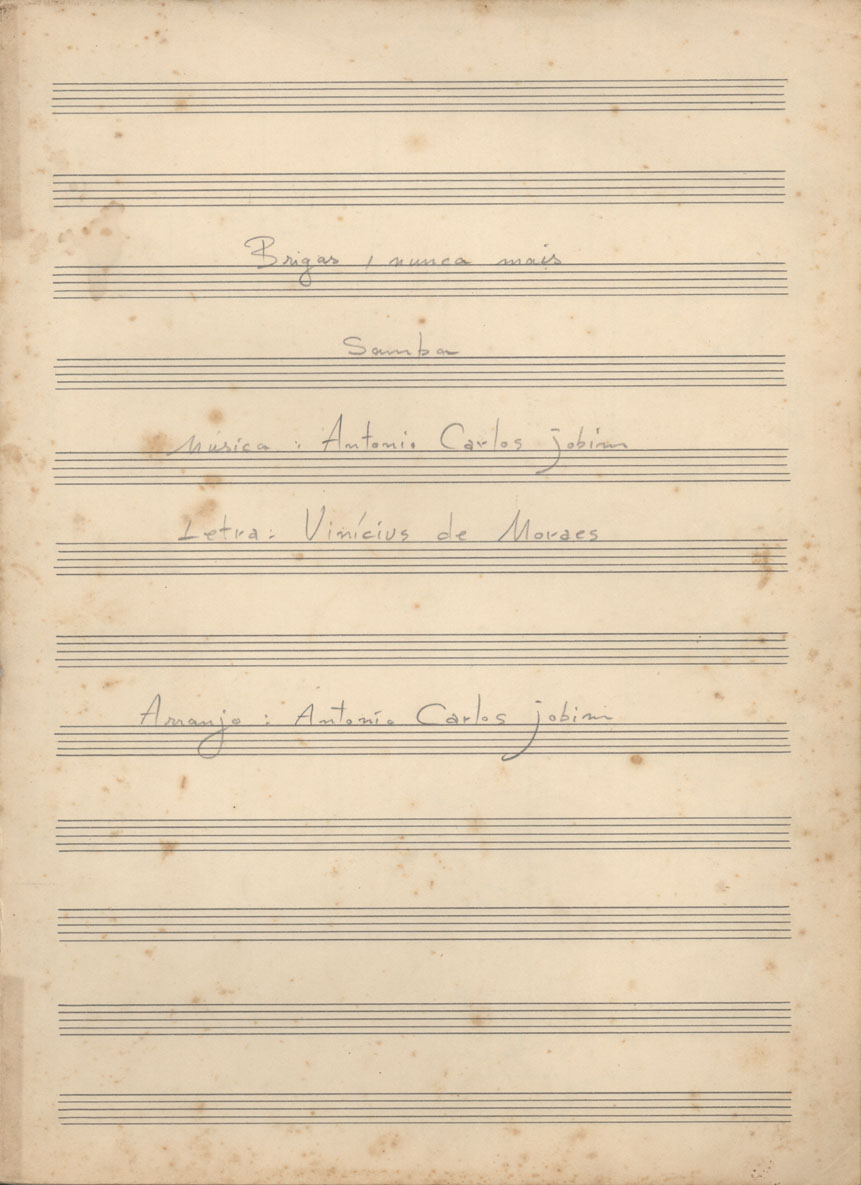 Brigas, nunca mais
Samba
Música: Antonio Carlos jobim
Letra: Vinícius de Moraes
Arranjo: Antonio Carlos jobim